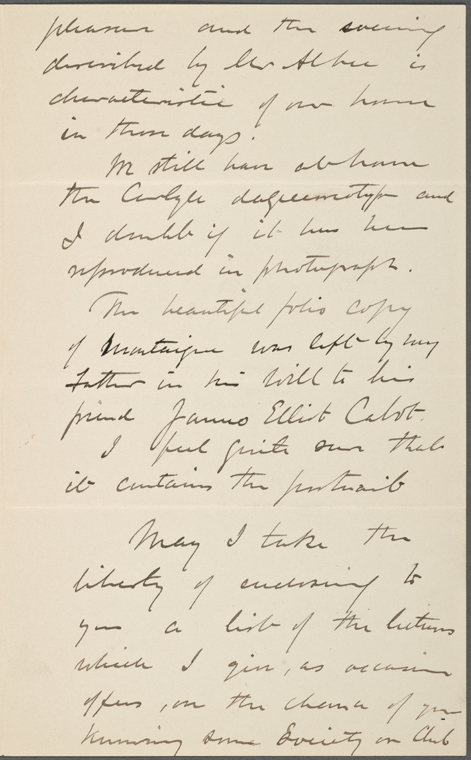 pleasure and the evening
described by Mr Albee is
characteristic of our home
in those days.
We still have at home
the Carlyle daguerreotype and
I doubt if it has been
reproduced in photograph.
The beautiful folio copy
of Montaigne was left by my
Father in his Will to his
friend James Elliot Cabot.
I feel quite sure that
it contains the portrait
May I take the
liberty of enclosing to
you a list of the lectures
which I give, as occasion
offers, on the chance of your
knowing some Society or Club